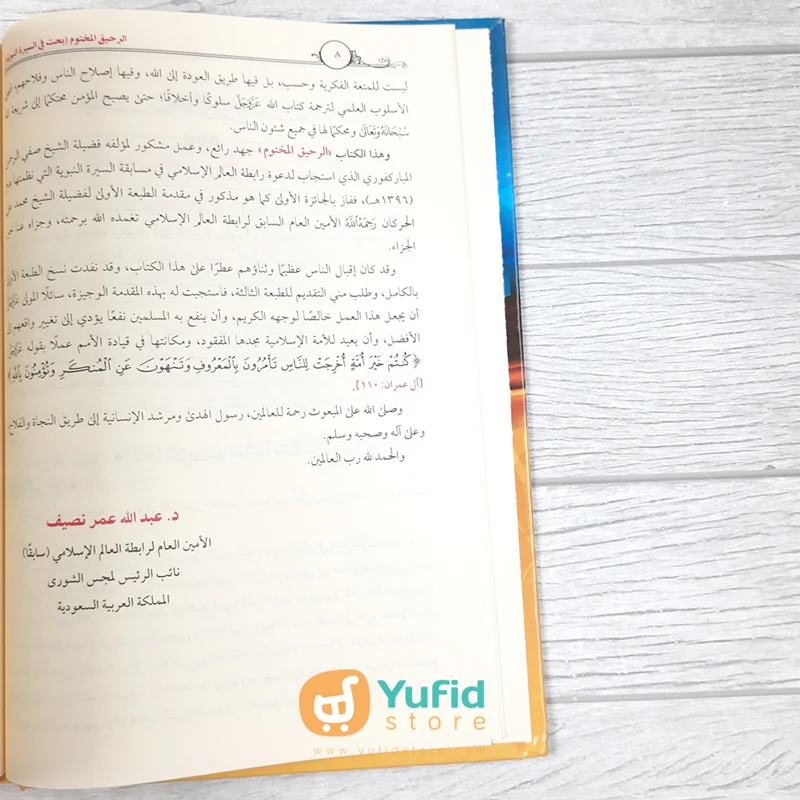 الرحيق المختوم (بحث في السيرة النبوية
٨
ليست للمتعة الفكرية وحسب، بل فيها طريق العودة إلى الله، وفيها إصلاح الناس وفلاحهم،
الأسلوب العلمي لترجمة كتاب الله عَزَّوَجَلَّ سلوكًا وأخلاقًا؛ حتى يصبح المؤمن محتكمًا إلى شريعة الله
سُبْحَانَهُوَتَعَالَى ومحكمًا لها في جميع شئون الناس.
وهذا الكتاب «الرحيق المختوم» جهد رائع، وعمل مشكور لمؤلفه فضيلة الشيخ صفي الرحمن
المباركفوري الذي استجاب لدعوة رابطة العالم الإسلامي في مسابقة السيرة النبوية التي نظمتها
(١٣٩٦هـ)، ففاز بالجائزة الأولى كما هو مذكور في مقدمة الطبعة الأولى لفضيلة الشيخ محمد علي
الحركان رَحِمَهُ ٱللَّهُ الأمين العام السابق لرابطة العالم الإسلامي تغمده الله برحمته، وجزاه عنا خير
الجزاء.
وقد كان إقبال الناس عظيمًا وثناؤهم عطرًا على هذا الكتاب، وقد نفدت نسخ الطبعة الأولى
بالكامل، وطلب مني التقديم للطبعة الثالثة، فاستجبت له بهذه المقدمة الوجيزة، سائلًا المولى عَزَّوَجَلَّ
أن يجعل هذا العمل خالصًا لوجهه الكريم، وأن ينفع به المسلمين نفعًا يؤدي إلى تغيير واقعهم إلى
الأفضل، وأن يعيد للأمة الإسلامية مجدها المفقود، ومكانتها في قيادة الأمم عملًا بقوله عَزَّوَجَلَّ
﴿كُنتُمْ خَيْرَ أُمَّةٍ أُخْرِجَتْ لِلنَّاسِ تَأْمُرُونَ بِالْمَعْرُوفِ وَتَنْهَوْنَ عَنِ الْمُنكَرِ وَتُؤْمِنُونَ بِاللَّهِ﴾
[آل عمران: ١١٠].
وصلى الله على المبعوث رحمة للعالمين، رسول الهدى ومرشد الإنسانية إلى طريق النجاة والفلاح،
وعلى آله وصحبه وسلم.
والحمد لله رب العالمين.
د. عبد الله عمر نصيف
الأمين العام لرابطة العالم الإسلامي (سابقًا)
نائب الرئيس لمجس الشورى
المملكة العربية السعودية
Yufid
store
www.yufidstore.com